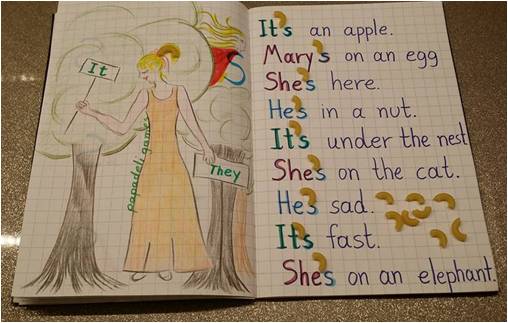 It
S
They
papadeli games
It's an apple.
Mary's on an egg
She's here.
He's in a nut.
It's under the nest
She's on the cat.
He's sad.
It's fast.
She's on an elephant.